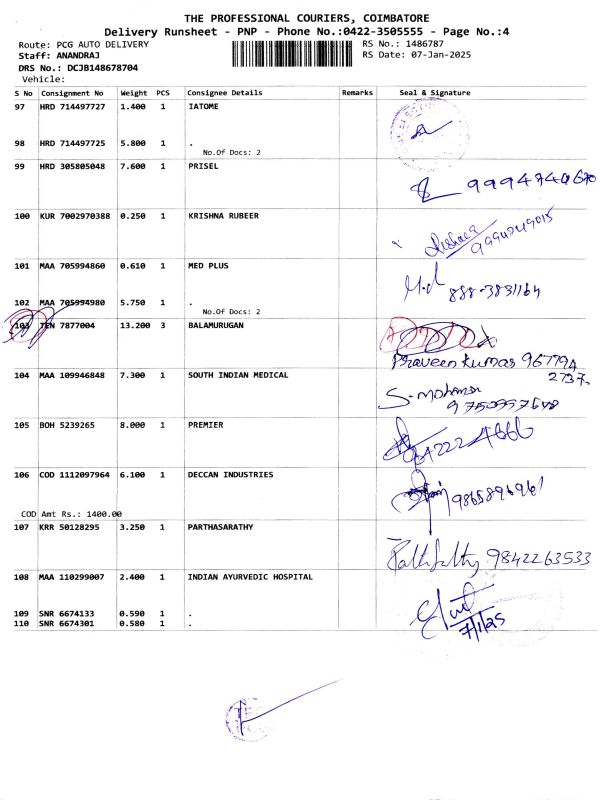 THE PROFESSIONAL COURIERS, COIMBATORE
Delivery Runsheet - PNP - Phone No.:0422-3505555 - Page No.:4
Route: PCG AUTO DELIVERY
RS No.: 1486787
Staff: ANANDRAJ
RS Date: 07-Jan-2025
DRS No.: DCJB148678704
Vehicle:
S No Consignment No Weight PCS Consignee Details Remarks Seal & Signature
97 HRD 714497727 1.400 1 IATOME
98 HRD 714497725 5.800 1 .
No.Of Docs: 2
99 HRD 305805048 7.600 1 PRISEL
100 KUR 7002970388 0.250 1 KRISHNA RUBEER
101 MAA 705994860 0.610 1 MED PLUS
888-3831164
102 MAA 705994980 5.750 1 .
No.Of Docs: 2
103 TEN 7877004 13.200 3 BALAMURUGAN
Praveen Kumar 967794
2737
104 MAA 109946848 7.300 1 SOUTH INDIAN MEDICAL
105 BOH 5239265 8.000 1 PREMIER
106 COD 1112097964 6.100 1 DECCAN INDUSTRIES
COD Amt Rs.: 1400.00
107 KRR 50128295 3.250 1 PARTHASARATHY
9842263533
108 MAA 110299007 2.400 1 INDIAN AYURVEDIC HOSPITAL
7/1/25
109 SNR 6674133 0.590 1 .
110 SNR 6674301 0.580 1 .